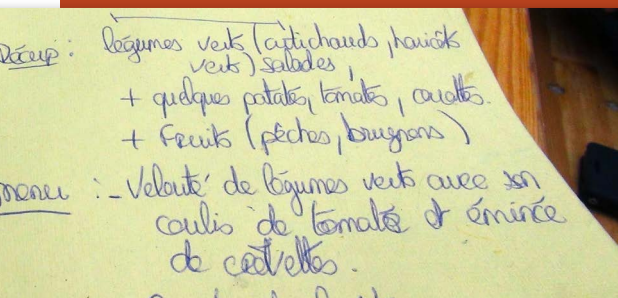 Récup : légumes verts (artichauds, haricots
verts) salades,
+ quelques patates, tomates, carottes.
+ Fruits (pêches, brugnons)
menu : - Velouté de légumes verts avec son
coulis de tomate et émincé
de crevettes.